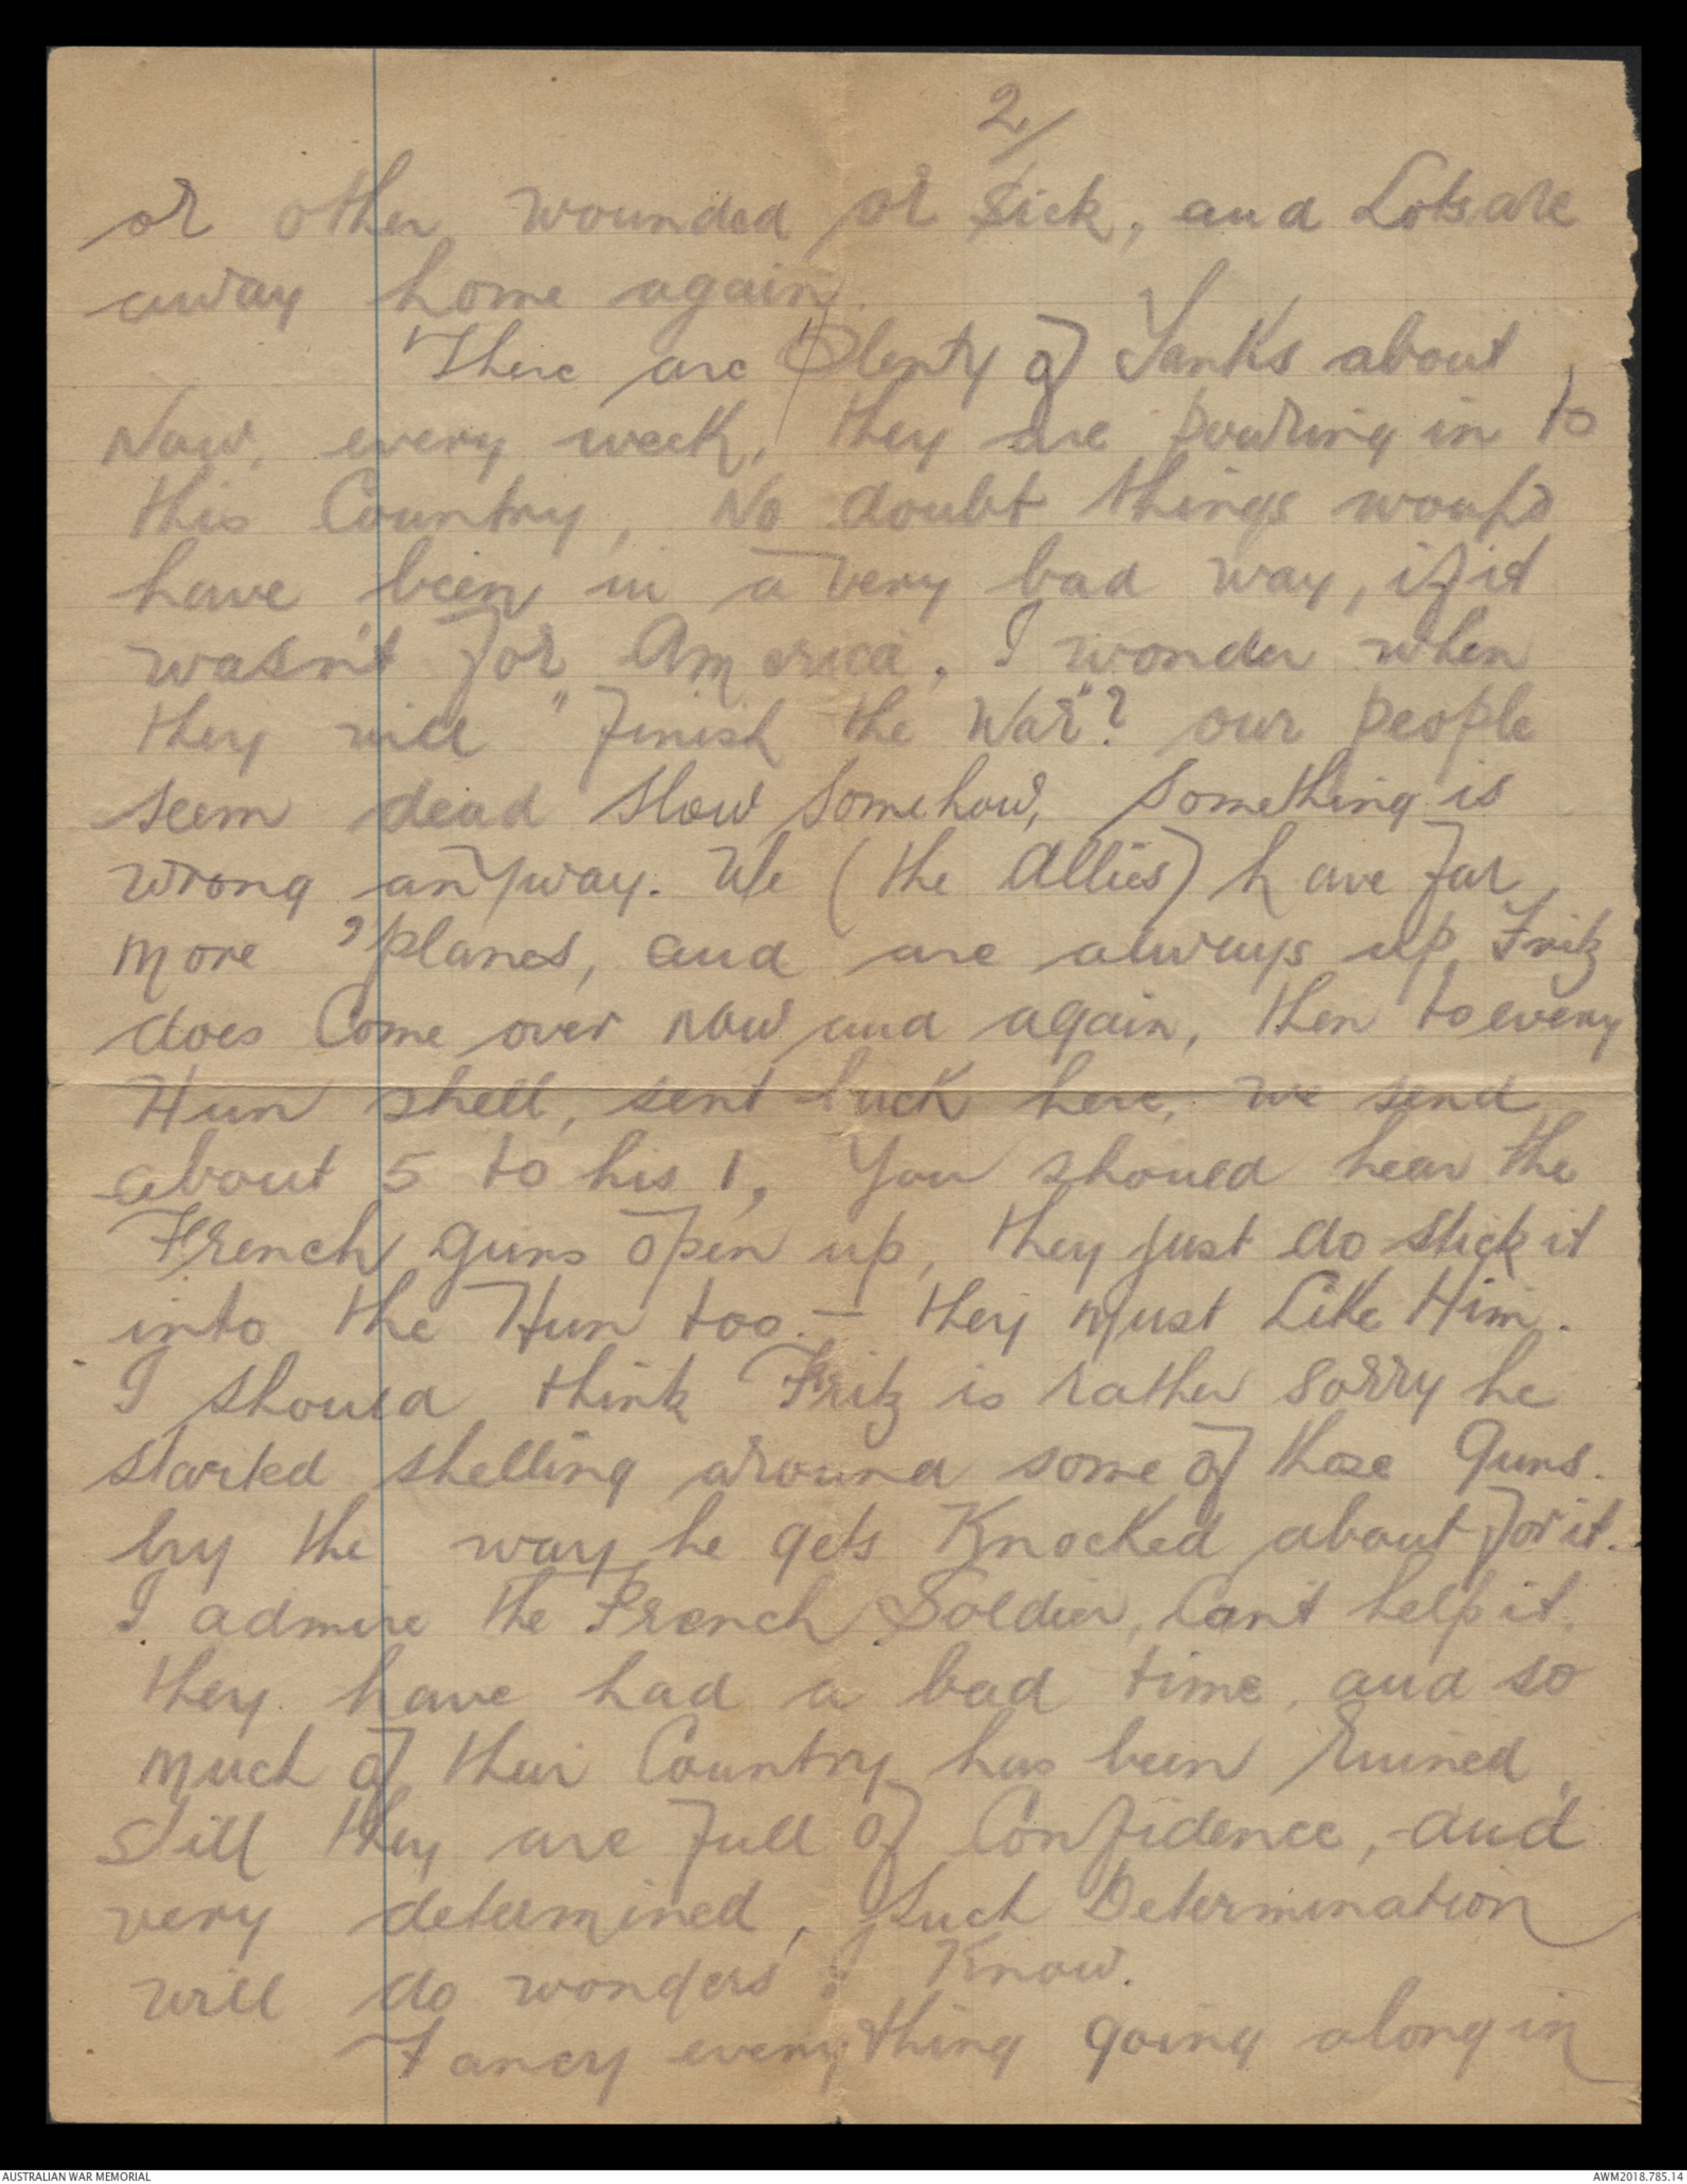 2/
or other wounded or sick, and Lots are
away home again.
There are Plenty of Yanks about
Now, every week, they are pouring in to
this Country, No doubt things would
have been in a very bad way, if it
wasn't for America, I wonder when
they will "finish the War"? our people
seem dead slow somehow, something is
wrong anyway. We (the Allies) have far
more 'planes, and are always up, Fritz
does Come over now and again, then to every
Hun shell, sent back here, we send
about 5 to his 1, You should hear the
French guns open up, they just do stick it
into the Hun too. — they must Like Him.
I should think Fritz is rather sorry he
started shelling around some of those Guns.
by the way he gets Knocked about for it.
I admire the French Soldier, Can't help it.
they have had a bad time, and so
much of their Country has been Ruined,
still they are full of Confidence, and
very determined, Such Determination
will do wonders Know.
Fancy everything going along in
AUSTRALIAN WAR MEMORIAL
AWM2018.785.14